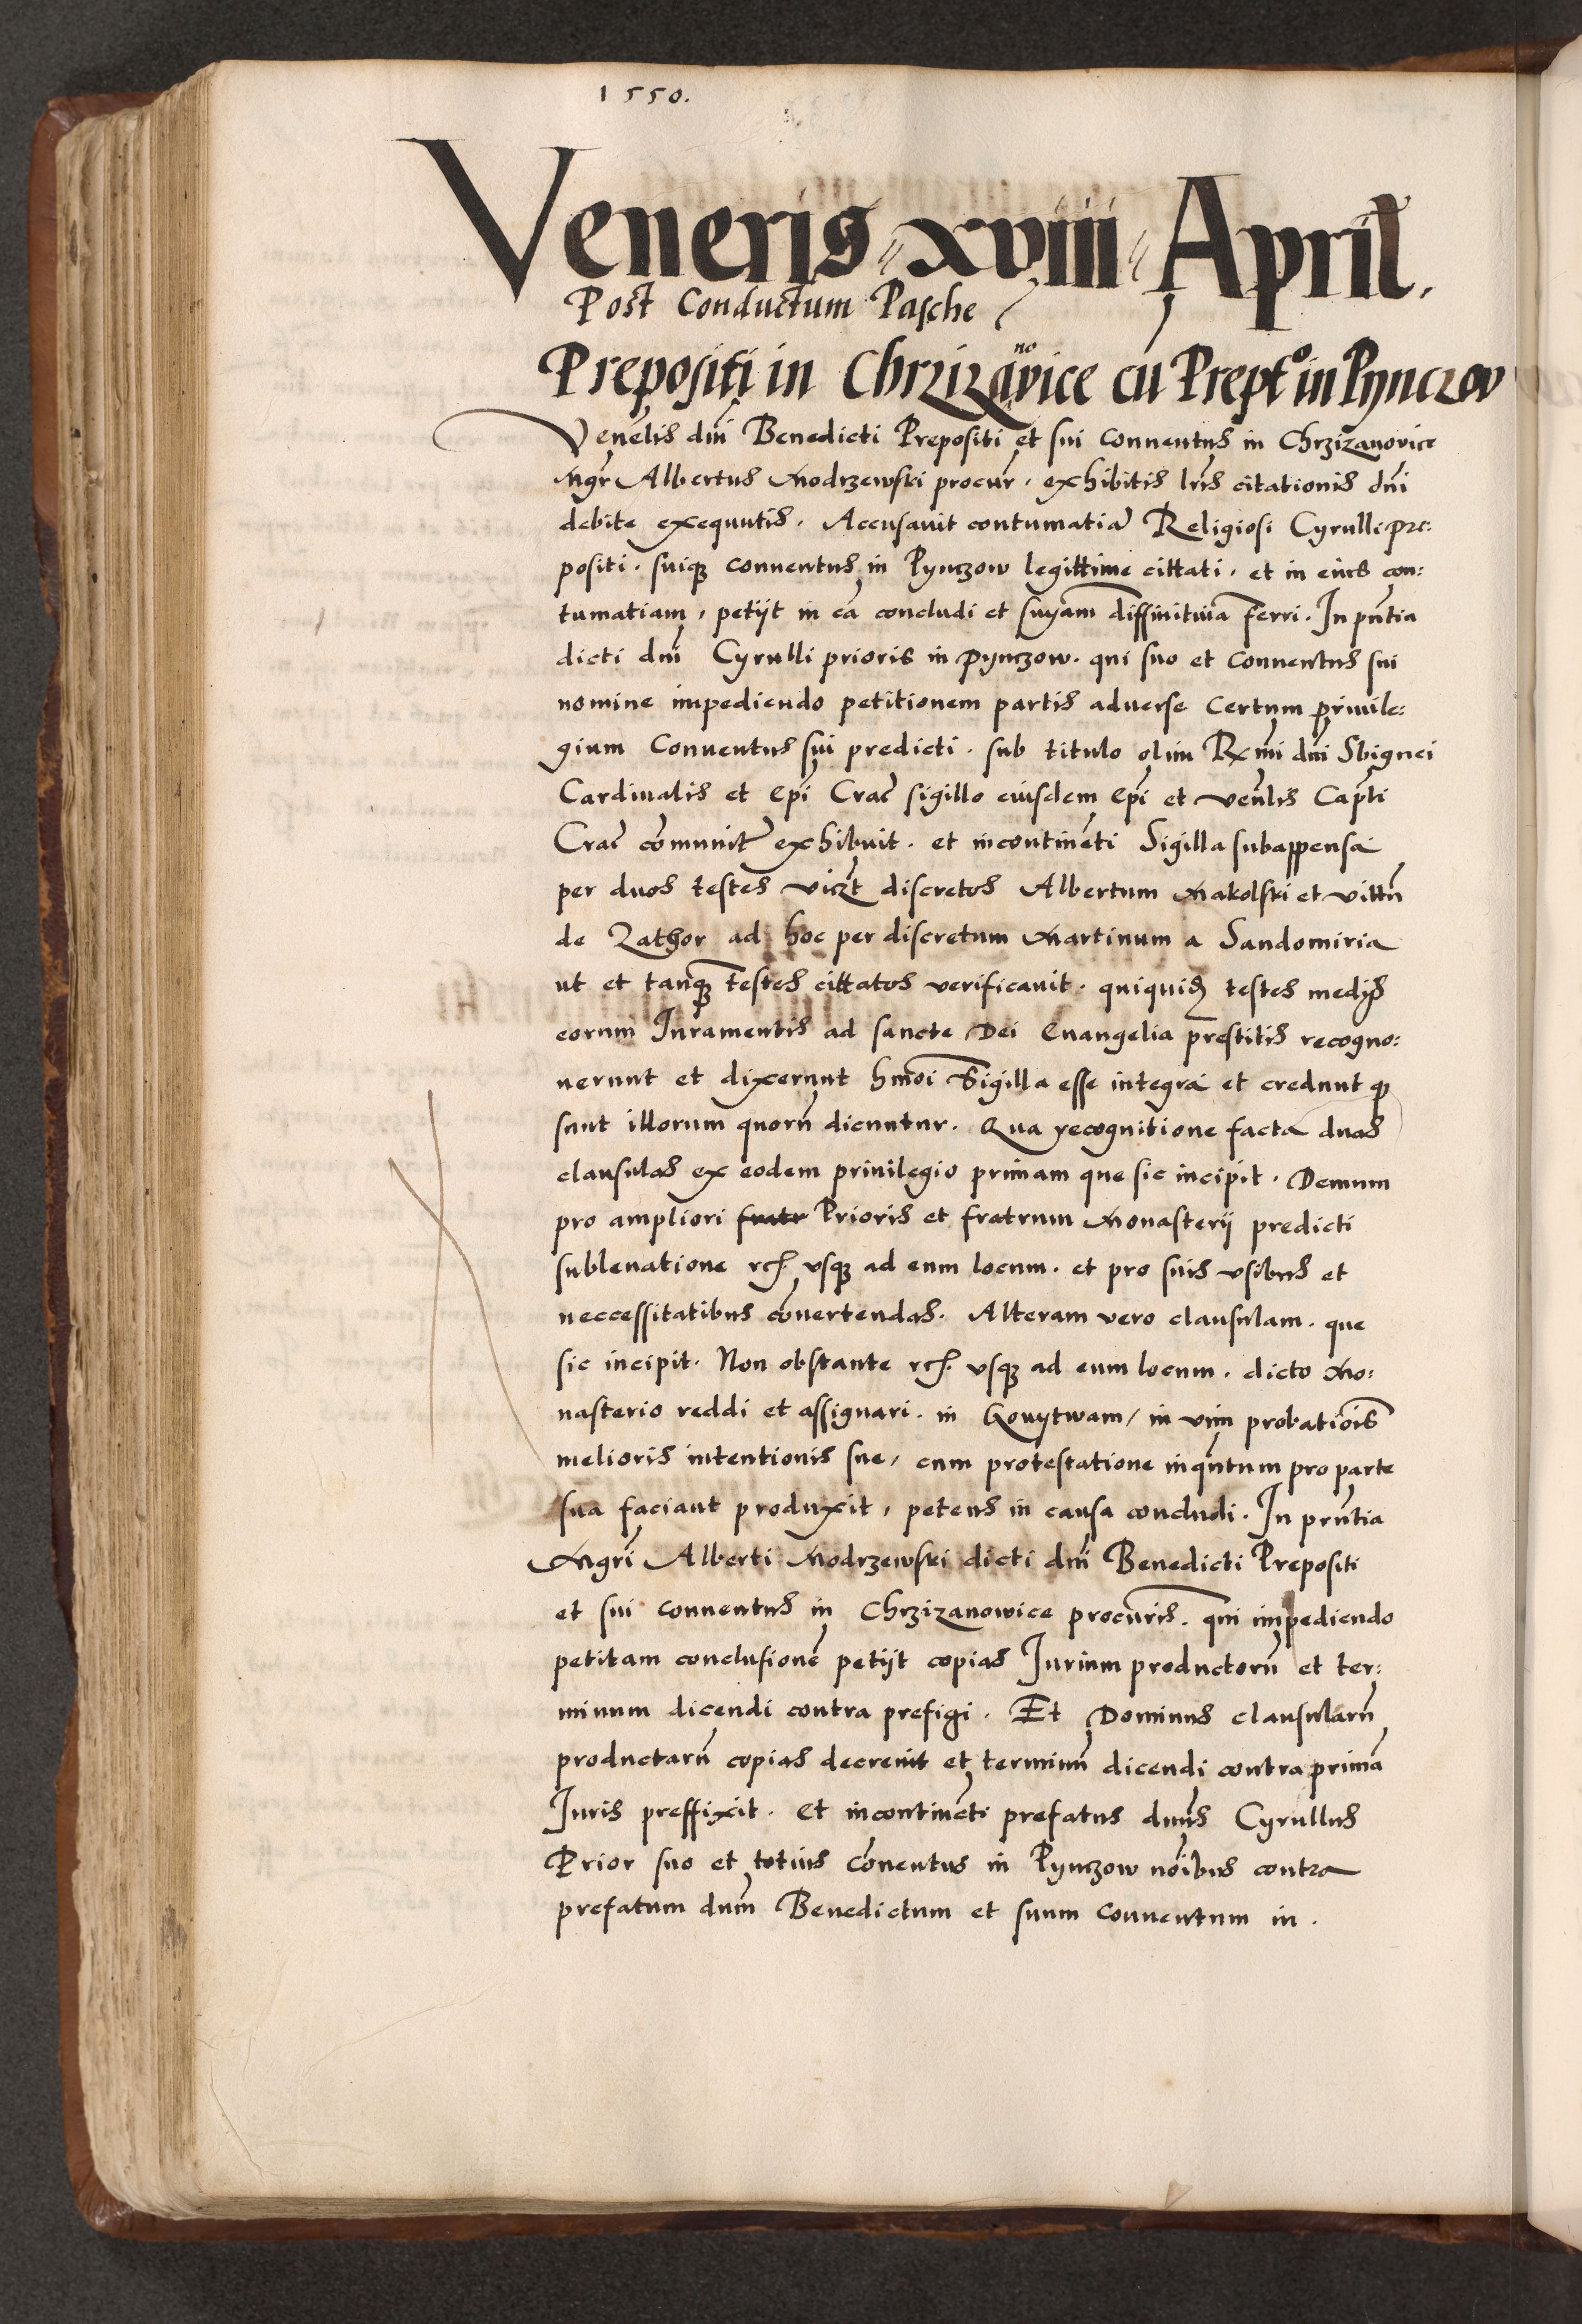 1550.
Veneris xviii April.
Post Conductum Pasche
no
Prepositi in Chrzizavice cū Prepto in Pynczov
Venelis dni Benedicti Prepositi et sui conventus in Chrzizanovice
Mgr Albertus Modrzewski procur. exhibitis lris citationis dni
debite exequutis. Accusavit contumatiā Religiosi Cyrulli pre:
positi. suiqz conventus in Pynczow legittime cittati. et in eius con:
tumatiam, petijt in cā concludi et snyam diffinitivā ferri. In pntia
dicti dni Cyrulli prioris in Pynczow. qui suo et conventus sui
nomine impediendo petitionem partis adverse Certum privile:
gium Conventus sui predicti. sub titulo olim Rxmi dni Sbignei
Cardinalis et Epi Crac sigillo eiusdem Epi et venlis Capti
Crac cōmunit exhibuit. et incontinēti Sigilla subappensa
per duos testes vicz discretos Albertum Makolski et vittū
de Zathor ad hoc per discretum Martinum a Sandomiria
ut et tanqz testes cittatos verificavit. quiquid testes medijs
eorum Juramentis ad sancte Dei Evangelia prestitis recogno:
verunt et dixerunt hmoi Sigilla esse integra et credunt qz
sunt illorum quorū dicuntur. Qua recognitione facta duas
clausulas ex eodem privilegio primam que sic incipit. Demum
pro ampliori fratr Prioris et fratrum Monasterij predicti
sublevatione rcz. usqz ad eum locum. et pro suis usibus et
neccessitatibus cōvertendas. Alteram vero clausulam. que
sic incipit. Non obstante rcz. usqz ad eum locum. dicto Mo:
nasterio reddi et assignari. in vim probatiois
melioris intentionis sue, cum protestatione inqntum pro parte
sua faciant produxit, petens in causa concludi. In prntia
Mgri Alberti Modrzewski dicti dni Benedicti Prepositi
et sui conventus in Chrzizanowice procuris. qui impediendo
petitam conclusionē petijt copias Jurium productorū et ter:
minum dicendi contra prefigi. Et Dominus clausularū
productarū copias decrevit et terminū dicendi contra primā
Juris preffixit. Et incontinēti prefatus dnus Cyrullus
Prior suo et totius cōventus in Pynczow noibus contra
prefatum dnm Benedictum et suum conventum in.